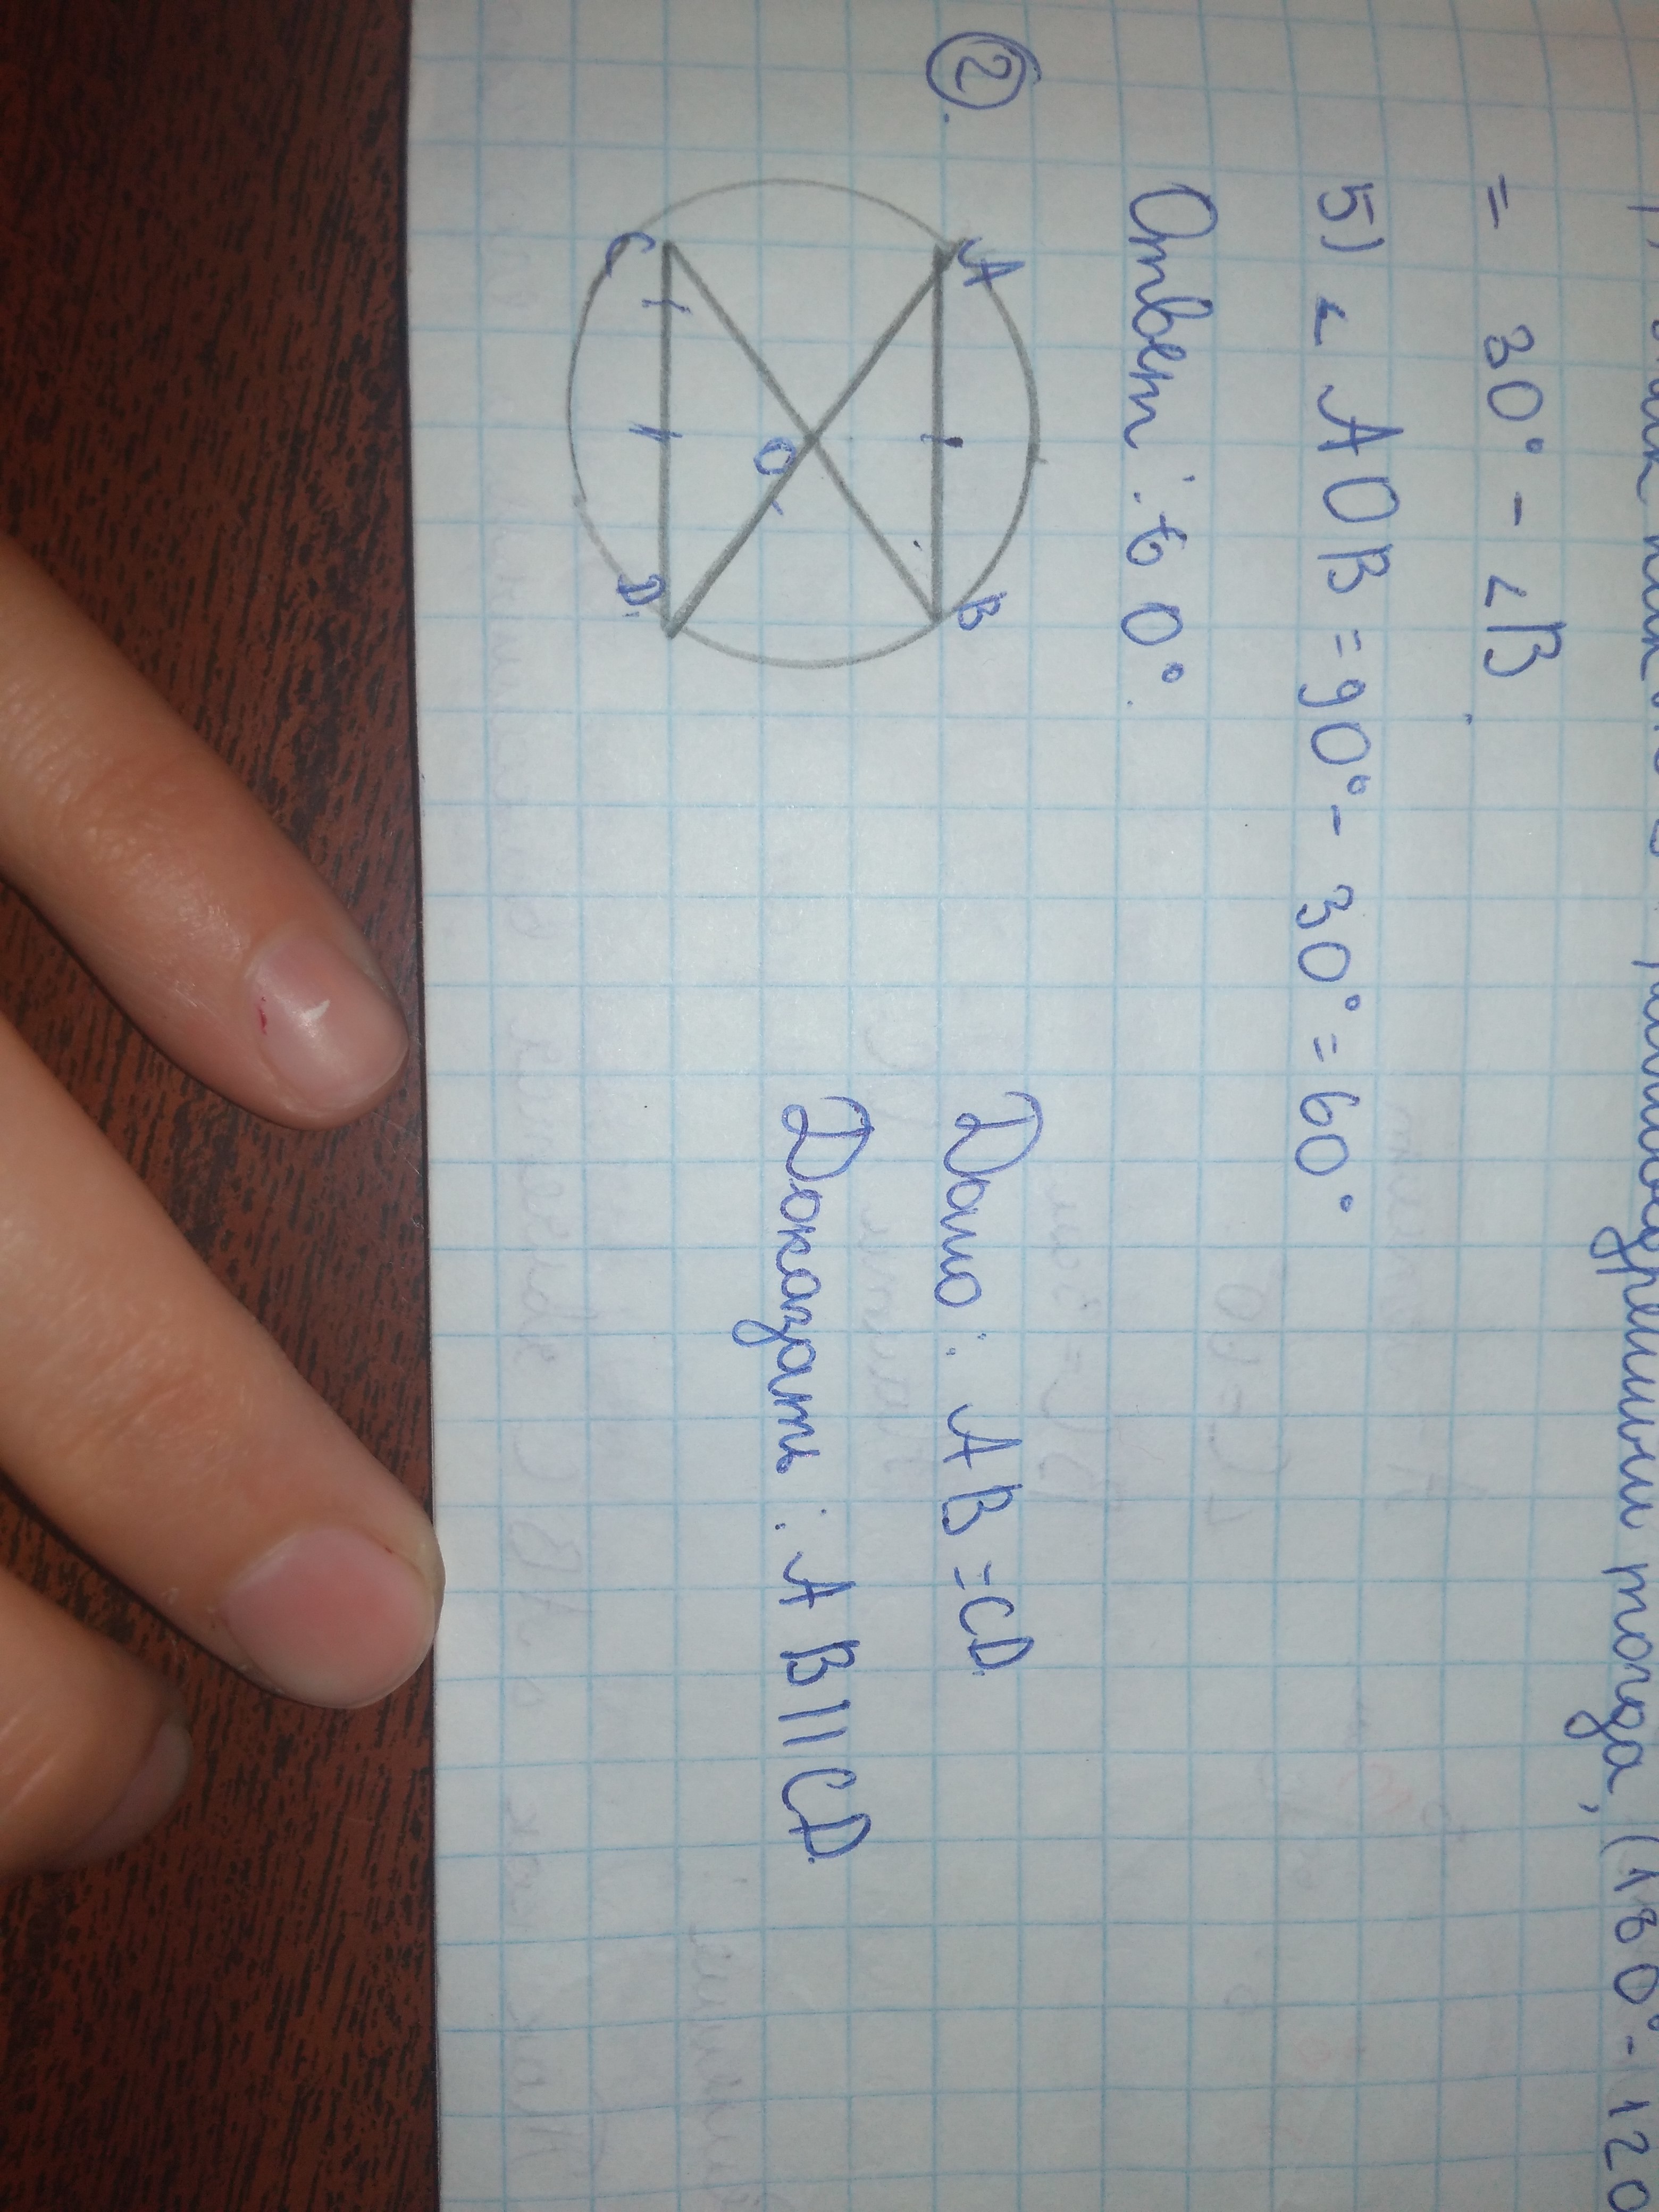 тогда, (180° - 120
= 30° - ∠B
5) ∠ AOB = 90° - 30° = 60°
Ответ : 60°.
2.
A
B
O
C
D
Дано : AB = CD.
Доказать : AB || CD.